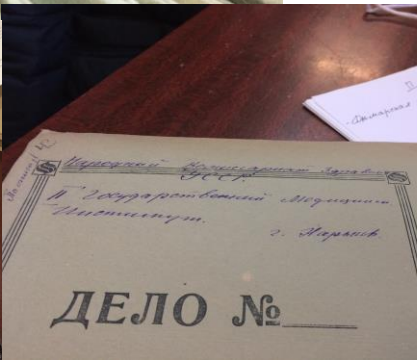 Народный Комиссариат Здрав.
УССР.
II Государственный Медицинск
Институт.
г. Харьков.
ДЕЛО №
II